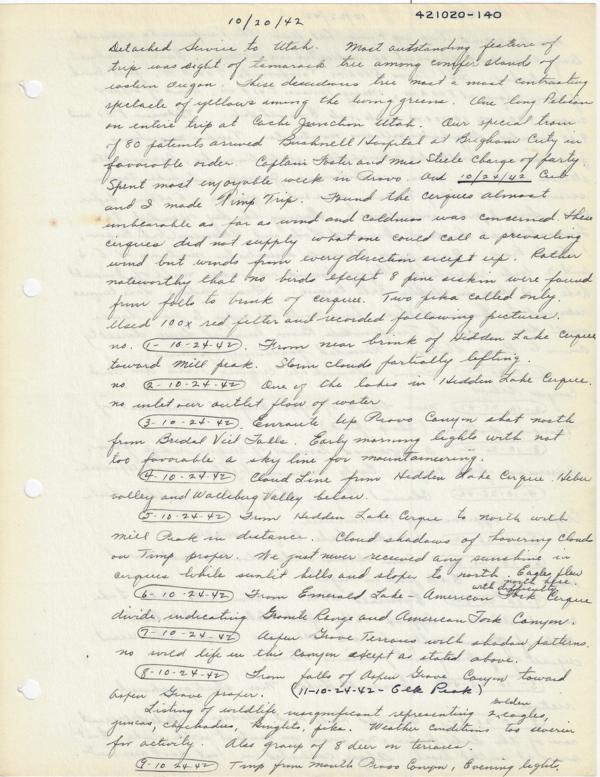 10/20/42
421020-140
Detached Service to Utah. Most outstanding feature of
trip was sight of tamarack tree among conifer stands of
eastern Oregon. These deciduous tree most a most contrasting
spectacle of yellows among the living greens. One long Pelican
on entire trip at Cache Junction Utah. Our special train
of 80 patients arrived Bushnell Hospital at Brigham City in
favorable order. Captain Foster and Miss Steele Charge of party
Spent most enjoyable week in Provo. Oct 10/24/42 Cub
and I made Timp Trip. Found the cirques almost
unbearable as far as wind and coldness was concerned. These
cirques did not supply what one could call a prevailing
wind but winds from every direction except up. Rather
noteworthy that no birds except 8 pine siskin were found
from falls to brink of cirque. Two pika called only.
Used 100x red filter and recorded following pictures.
no. 1-10-24-42. From near brink of Hidden Lake Cirque
toward Mill peak. Storm clouds partially lifting.
no 2-10-24-42 One of the lakes in Hidden Lake Cirque.
no inlet our outlet flow of water
3-10-24-42. Enroute Up Provo Canyon shot north
from Bridal Veil Falls. Early morning lights with not
too favorable a sky line for mountaineering.
4-10-24-42 Cloud Line from Hidden Lake Cirque. Heber
valley and Wallsburg Valley below.
5-10-24-42 From Hidden Lake Cirque to north with
Mill Peak in distance. Cloud shadows of hovering clouds
on Timp proper. We just never received any sunshine in
cirques while sunlit hills and slopes to north. Eagles flew
north here. with difficulty
6-10-24-42 From Emerald Lake - American Fork Cirque
divide, indicating Granite Range and American Fork Canyon.
7-10-24-42 Aspen Grove Terrous with shadow patterns.
no wild life in this canyon except as stated above.
8-10-24-42 From falls of Aspen Grove Canyon toward
aspen Grove proper. (11-10-24-42 - Elk Peak)
Listing of wildlife insignificant representing 2 golden eagles,
juncos, chickadees, kinglets, pika. Weather conditions too severe
for activity. Also group of 8 deer on terraces.
9-10-24-42 Timp from mouth Provo Canyon, Evening light.